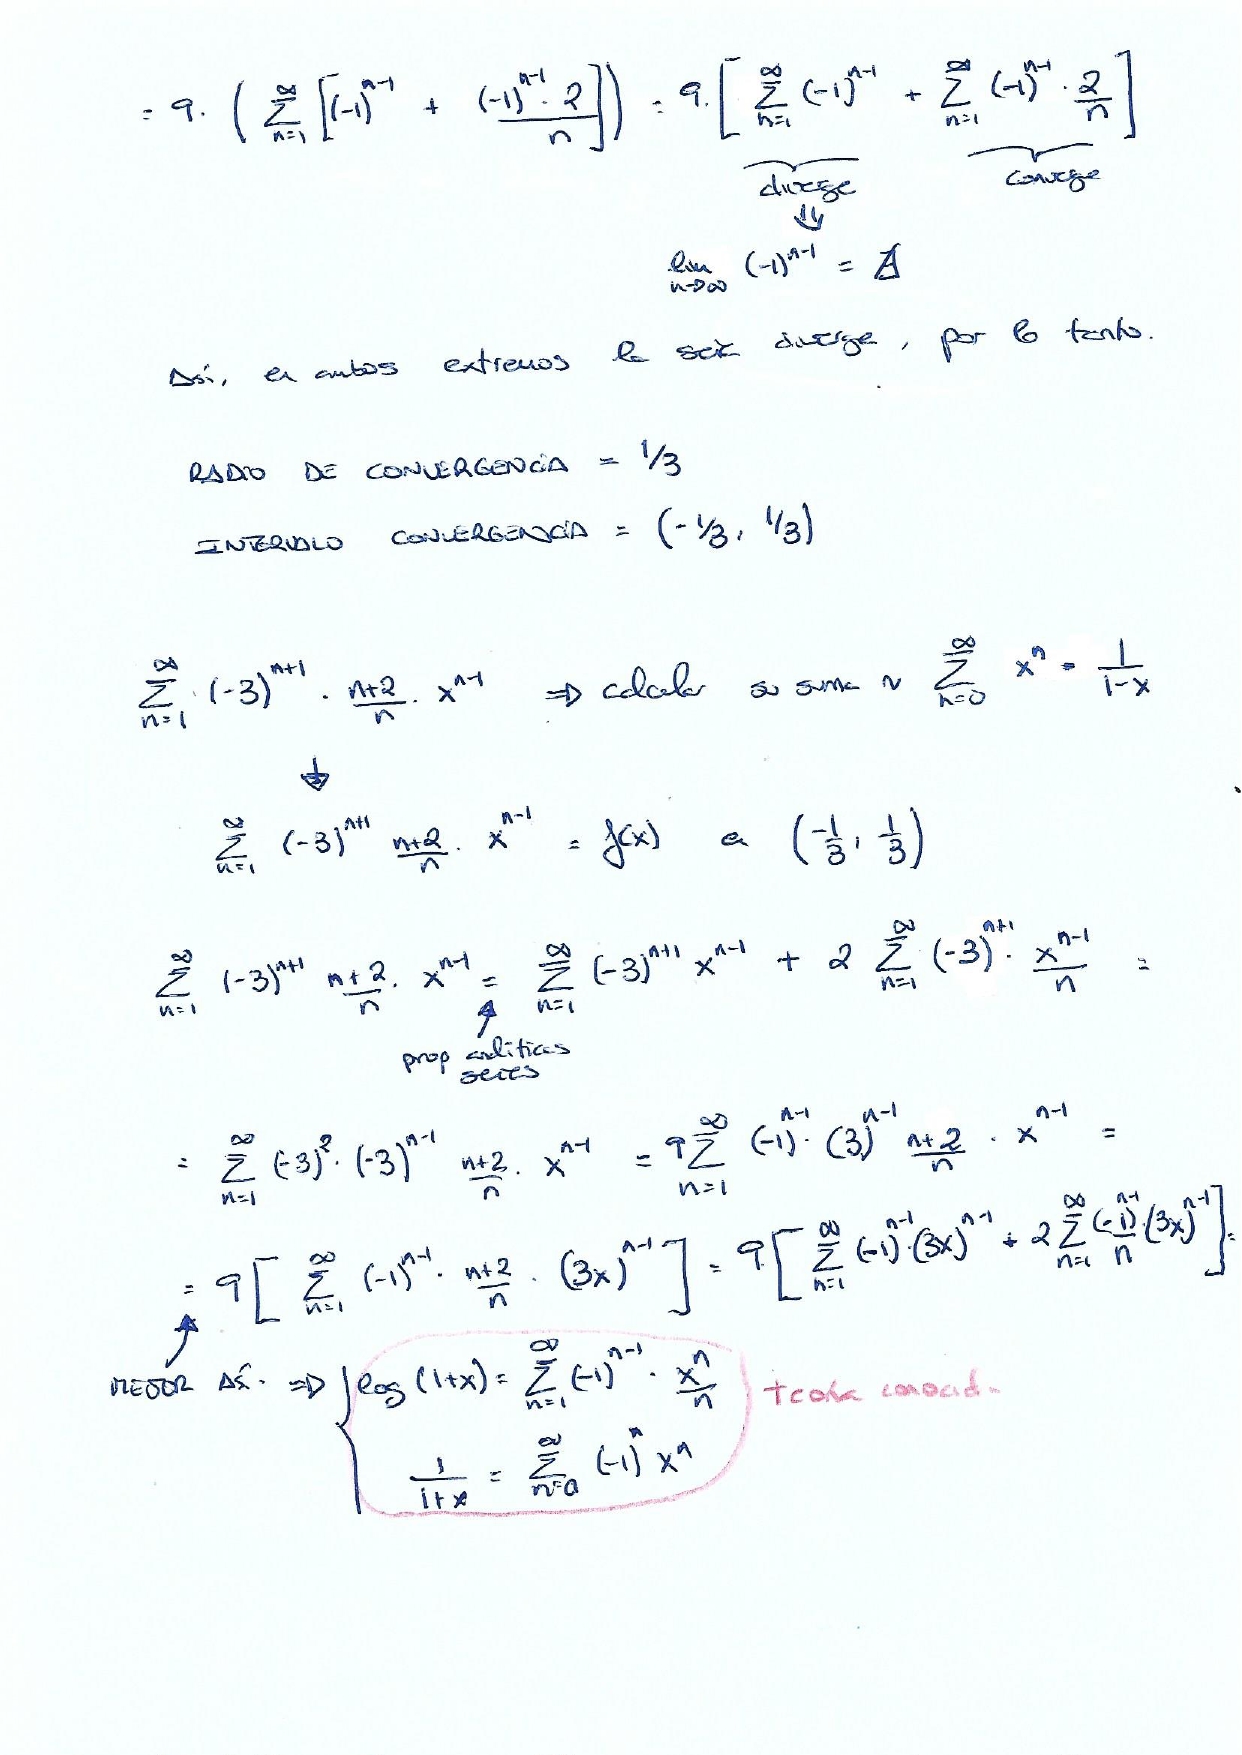 = 9 · ( ∑_{n=1}^{∞} [ (-1)^{n-1} + \frac{(-1)^{n-1} · 2}{n} ] ) = 9 · [ ∑_{n=1}^{∞} (-1)^{n-1} + ∑_{n=1}^{∞} (-1)^{n-1} · \frac{2}{n} ]
diverge converge
⇓
lim_{n→∞} (-1)^{n-1} = ∄
Así, en ambos extremos la serie diverge, por lo tanto.
RADIO DE CONVERGENCIA = 1/3
INTERVALO CONVERGENCIA = (-1/3, 1/3)
∑_{n=1}^{∞} (-3)^{n+1} · \frac{n+2}{n} · x^{n-1} ⇒ calcular su suma ~ ∑_{n=0}^{∞} x^n = \frac{1}{1-x}
↓
∑_{n=1}^{∞} (-3)^{n+1} \frac{n+2}{n} · x^{n-1} = f(x) en (\frac{-1}{3}, \frac{1}{3})
∑_{n=1}^{∞} (-3)^{n+1} \frac{n+2}{n} · x^{n-1} = ∑_{n=1}^{∞} (-3)^{n+1} x^{n-1} + 2 ∑_{n=1}^{∞} (-3)^{n+1} · \frac{x^{n-1}}{n} =
↑
prop analíticas
series
= ∑_{n=1}^{∞} (-3)^2 · (-3)^{n-1} \frac{n+2}{n} · x^{n-1} = 9 ∑_{n=1}^{∞} (-1)^{n-1} · (3)^{n-1} \frac{n+2}{n} · x^{n-1} =
= 9 [ ∑_{n=1}^{∞} (-1)^{n-1} · \frac{n+2}{n} · (3x)^{n-1} ] = 9 [ ∑_{n=1}^{∞} (-1)^{n-1} · (3x)^{n-1} + 2 ∑_{n=1}^{∞} \frac{(-1)^{n-1}}{n} · (3x)^{n-1} ] =
↑
MEJOR ASÍ. ⇒ { log (1+x) = ∑_{n=1}^{∞} (-1)^{n-1} · \frac{x^n}{n} teoría conocid.
\frac{1}{1+x} = ∑_{n=0}^{∞} (-1)^n x^n